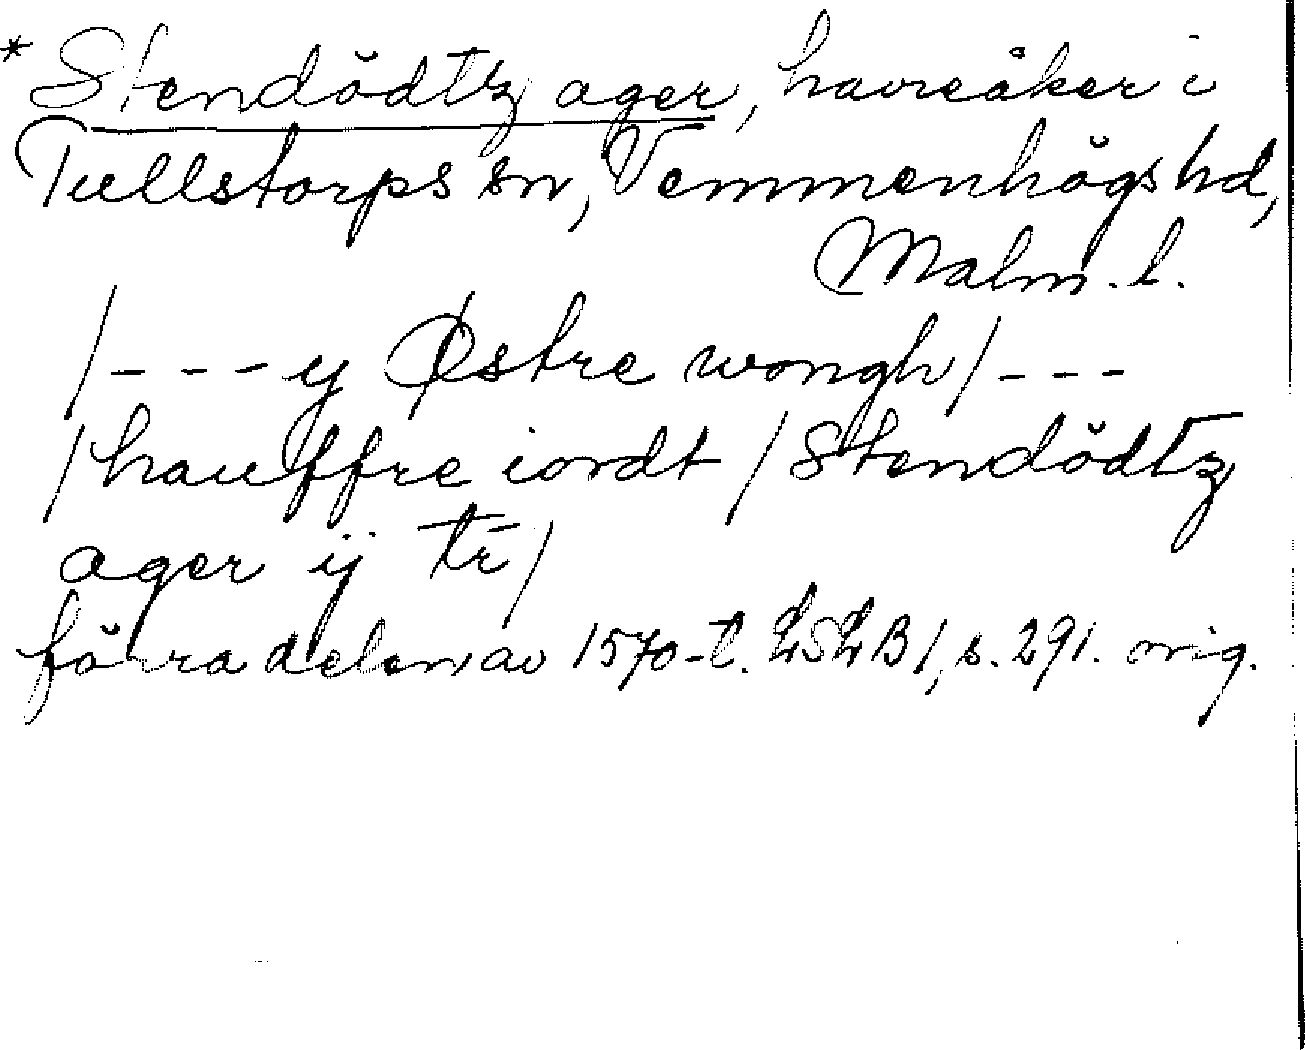 * Stendödtz ager, havreåker i
Tullstorps sn, Vemmenhögs hd,
Malm. l.
/ - - - y Østre wongh / - - -
/ hauffre iordt / Stendödtz
ager ij tr /
förra delen av 1570-t. LSLB 1, s. 291. orig.